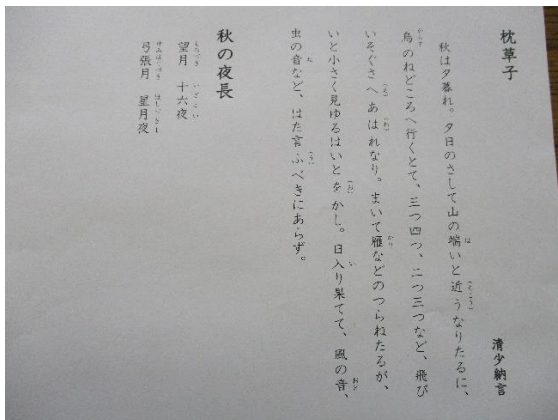 枕草子
清少納言
秋は夕暮れ。夕日のさして山の端いと近うなりたるに、
烏のねどころへ行くとて、三つ四つ、二つ三つなど、飛び
いそぐさへあはれなり。まいて雁などのつらねたるが、
いと小さく見ゆるはいとをかし。日入り果てて、風の音、
虫の音など、はた言ふべきにあらず。
秋の夜長
望月 十六夜
弓張月 星月夜